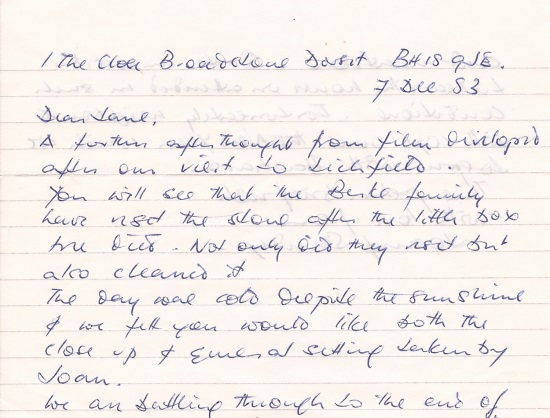 1 The Close Broadstone Dorset BH18 9JE.
7 Dec 83
Dear Jane,
A further afterthought from film developed
after our visit to Lichfield.
You will see that the family
have reset the stone after the little box
tree died. Not only did they reset but
also cleaned it
The day was cold despite the sunshine
& we felt you would like both the
close up & general setting taken by
Joan.
We are battling through to the end of